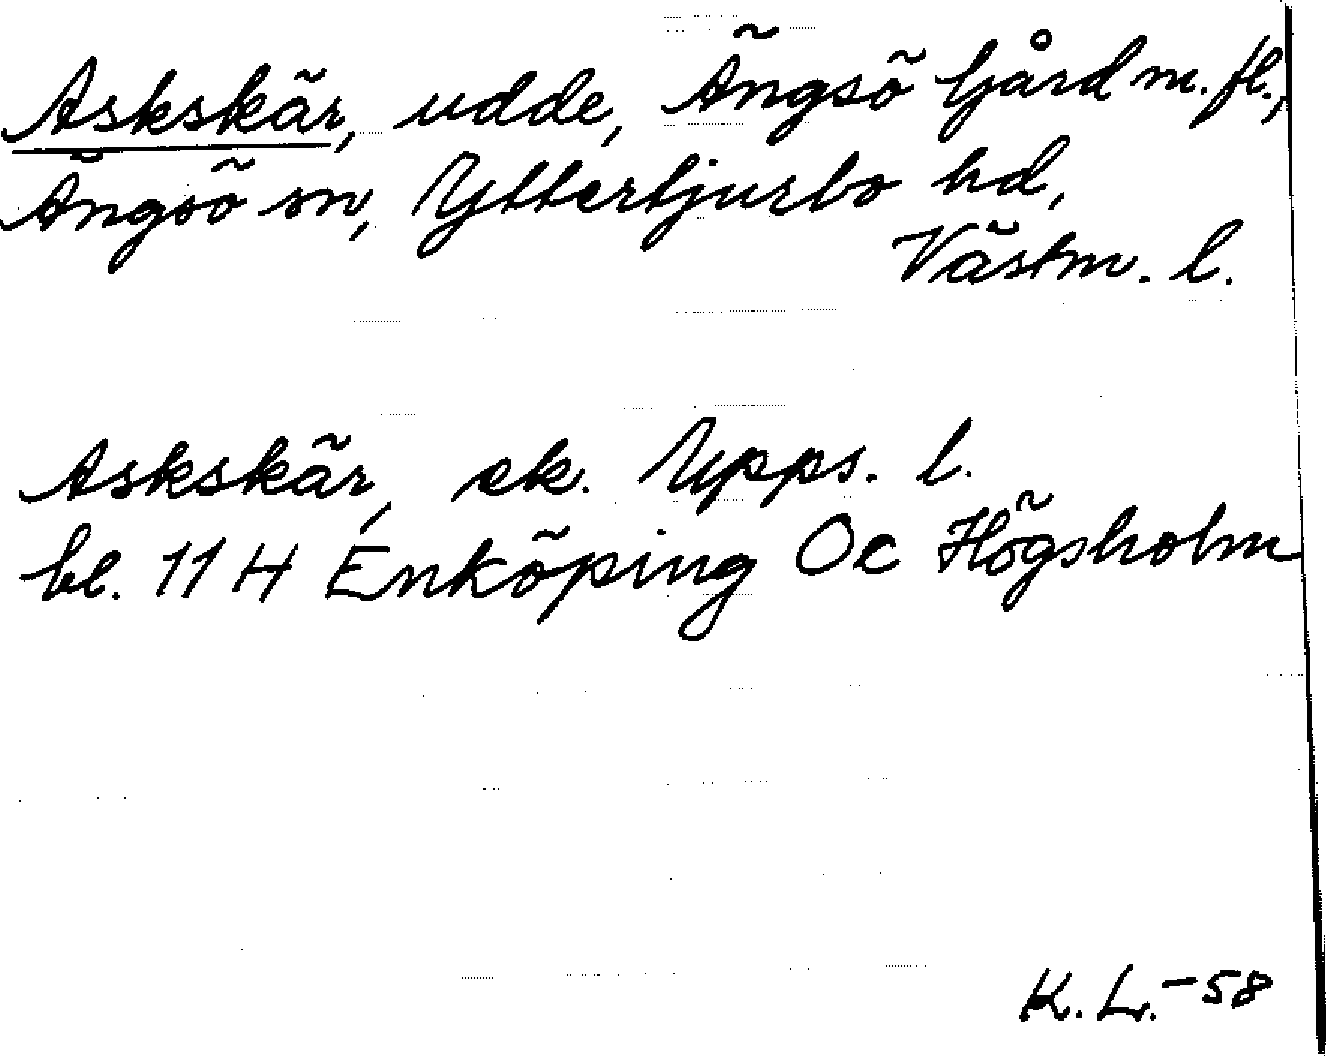 Askskär, udde, Ängsö Gård m.fl.,
Ängsö sn, Yttertjurbo hd,
Västm. l.
Askskär, ek. Upps. l.
bl. 11 H Enköping Oc Högsholm
K.L.-58